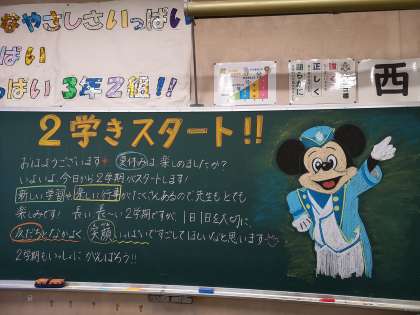 なやさしさいっぱい
ぱい
っぱい 3年2組!!
強く
正しく
朗らかに
西
2学きスタート!!
おはようございます 夏休みは楽しめましたか?
いよいよ、今日から2学期がスタートします!
新しい学習や楽しい行事がたくさんあるので先生もとても
楽しみです! 長い長〜い2学期ですが、1日1日を大切に、
友だちとなかよく笑顔いっぱいですごしてほしいなと思います
2学期もいっしょにがんばろう!!